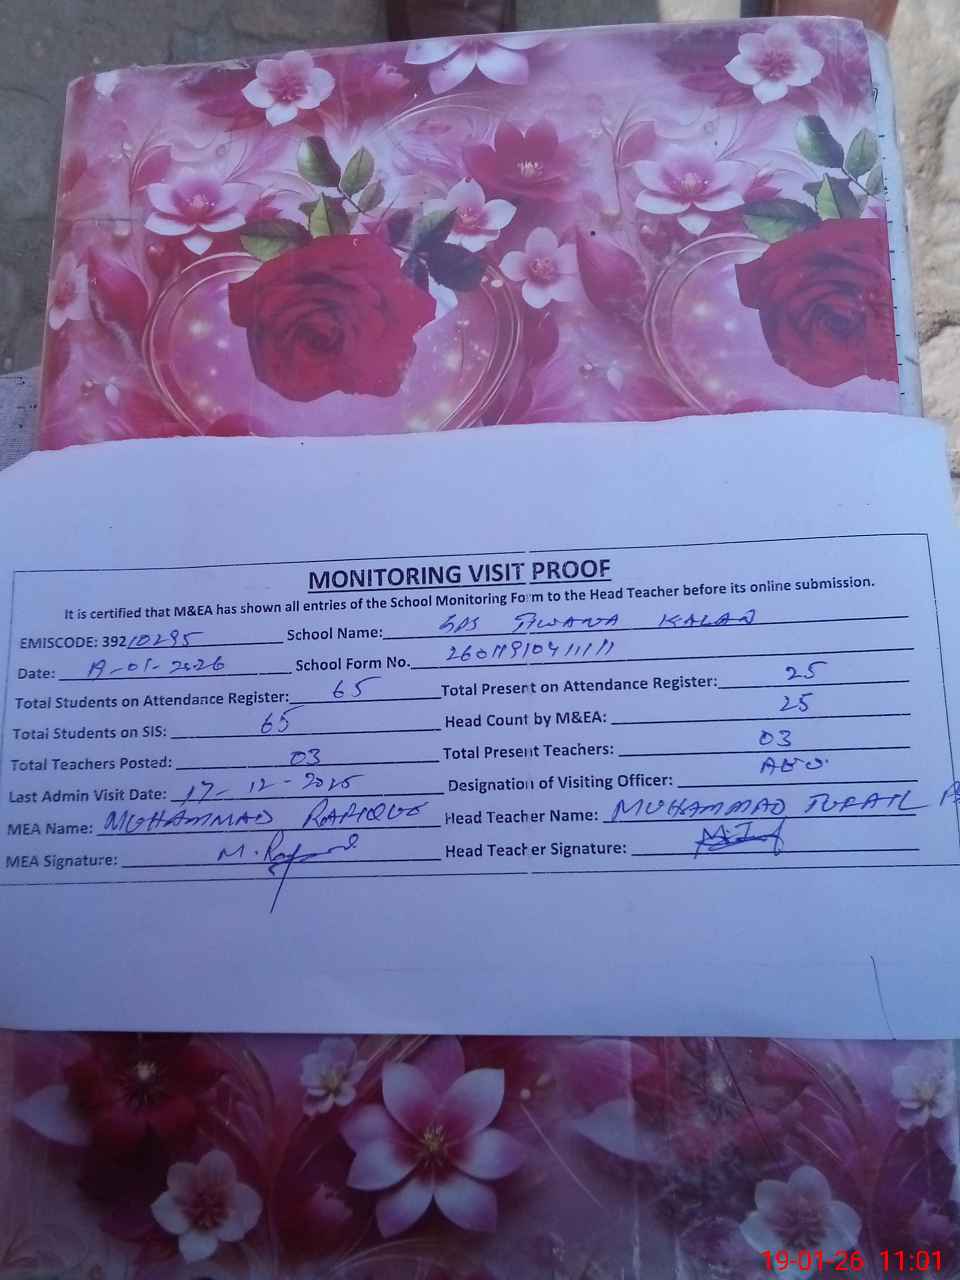 MONITORING VISIT PROOF
It is certified that M&EA has shown all entries of the School Monitoring Form to the Head Teacher before its online submission.
EMISCODE: 39210295 School Name: GPS TIWANA KALAN
Date: 19-01-2026 School Form No.
Total Students on Attendance Register: 65 Total Present on Attendance Register: 25
Total Students on SIS: 65 Head Count by M&EA: 25
Total Teachers Posted: 03 Total Present Teachers: 03
Last Admin Visit Date: 17-12-2025 Designation of Visiting Officer: AEO
MEA Name: MUHAMMAD RAFIQUE Head Teacher Name: MUHAMMAD TUFAIL
MEA Signature: Head Teacher Signature:
19-01-26 11:01